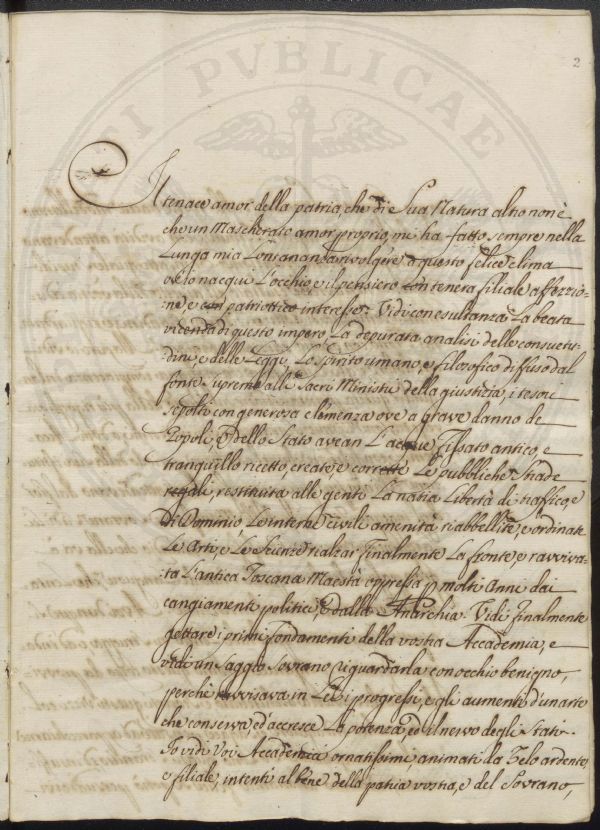 2
PVBLICAE
Il
tenace amor della patria, che di Sua Natura altro non è
che un Mascherato amor proprio, mi ha fatto sempre nella
Lunga mia Lontananza rivolgere a questo felice clima
ov'io nacqui L'occhio, e il pensiero con tenera filiale affezzio-
:ne, e con patriottico interesse. Vidi con esultanza La beata
vicenda di questo impero, La depurata analisi delle consuetu-
:dini, e delle Leggi, Lo spirito umano, e filosofico diffuso dal
fonte supremo alli Sacri Ministri della giustizia, i tesori
sepolti con generosa clemenza ove a grave danno de
Popoli, e dello Stato avean L'acque fissato antico, e
tranquillo ricetto, create, e corrette Le pubbliche Strade
regali, restituita alle genti La natia Libertà di traffico, e
di Dominio, Le interne civili amenità riabbellite, e ordinate
Le Arti, e Le Scienze rialzar finalmente La fronte, e ravviva-
:ta L'antica Toscana Maestà oppressa p molti Anni dai
cangiamenti politici, e dalla Anarchia. Vidi finalmente
gettare i primi fondamenti della vostra Accademia, e
vidi un Saggio Sovrano riguardarla con occhio benigno,
perchè ravvisava in Lei i progressi, e gli aumenti d'un arte
che conserva, ed accresce La potenza, ed il nervo degli Stati.
Io vidi Voi Accademici ornatissimi, animati da Zelo ardente,
e filiale, intenti al bene della patria vostra, e del Sovrano,